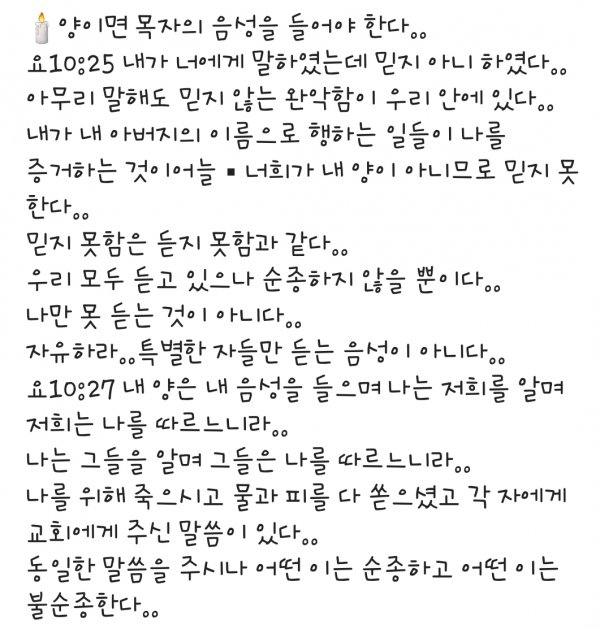 🕯️양이면 목자의 음성을 들어야 한다。。
요10:25 내가 너에게 말하였는데 믿지 아니 하였다。。
아무리 말해도 믿지 않는 완악함이 우리 안에 있다。。
내가 내 아버지의 이름으로 행하는 일들이 나를
증거하는 것이어늘 ▪ 너희가 내 양이 아니므로 믿지 못
한다。。
믿지 못함은 듣지 못함과 같다。。
우리 모두 듣고 있으나 순종하지 않을 뿐이다。。
나만 못 듣는 것이 아니다。。
자유하라。。특별한 자들만 듣는 음성이 아니다。。
요10:27 내 양은 내 음성을 들으며 나는 저희를 알며
저희는 나를 따르느니라。。
나는 그들을 알며 그들은 나를 따르느니라。。
나를 위해 죽으시고 물과 피를 다 쏟으셨고 각 자에게
교회에게 주신 말씀이 있다。。
동일한 말씀을 주시나 어떤 이는 순종하고 어떤 이는
불순종한다。。